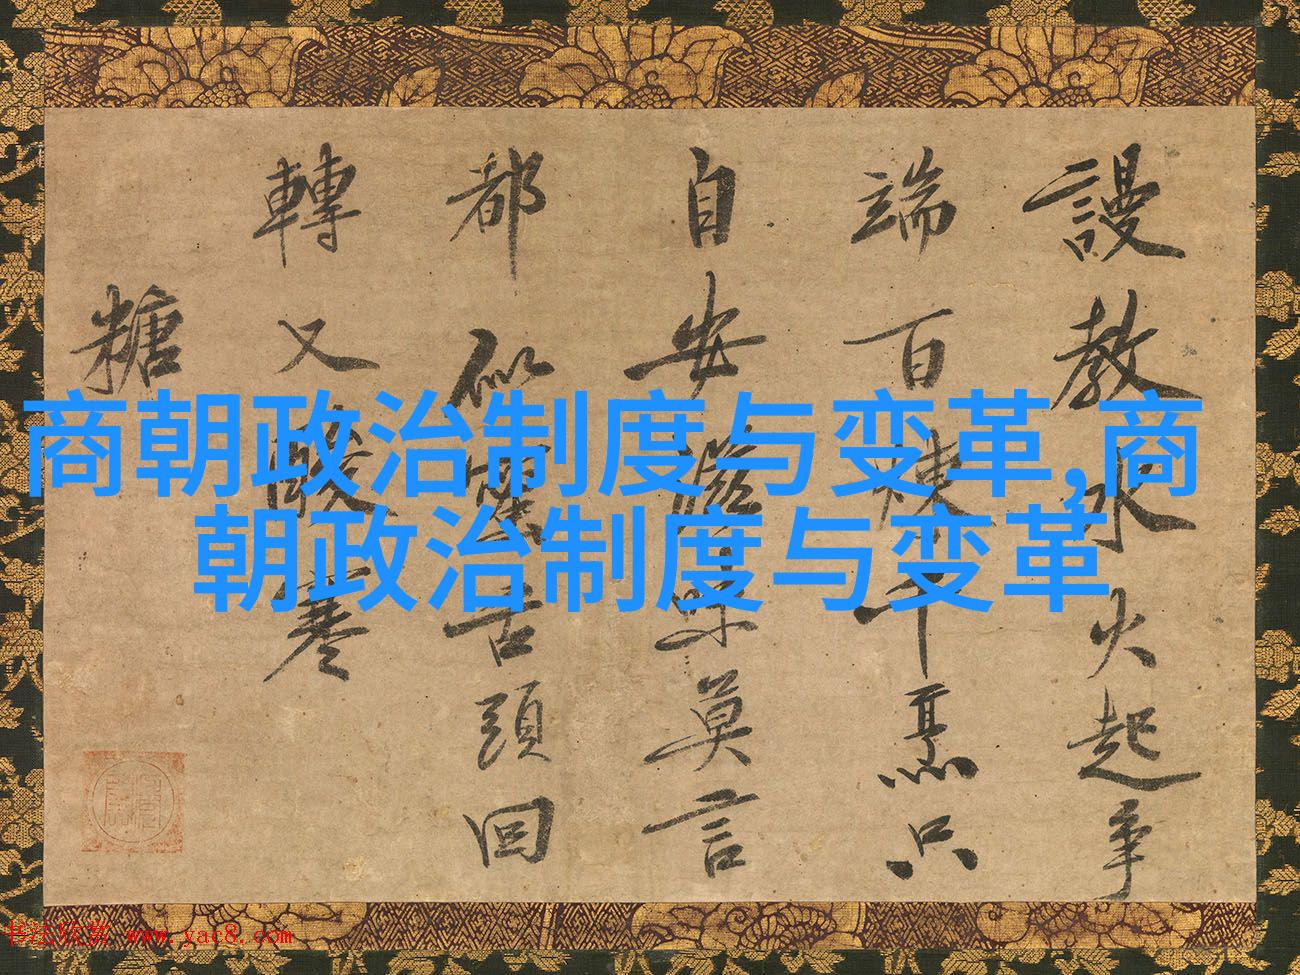 商朝政治制度与变革,商
朝政治制度与变革
謾教水火起爭
端百煉千熏只
自安滋味莫言
都似蜜舌頭回
轉又酸寒
糖
书法欣赏 www.yac8.com